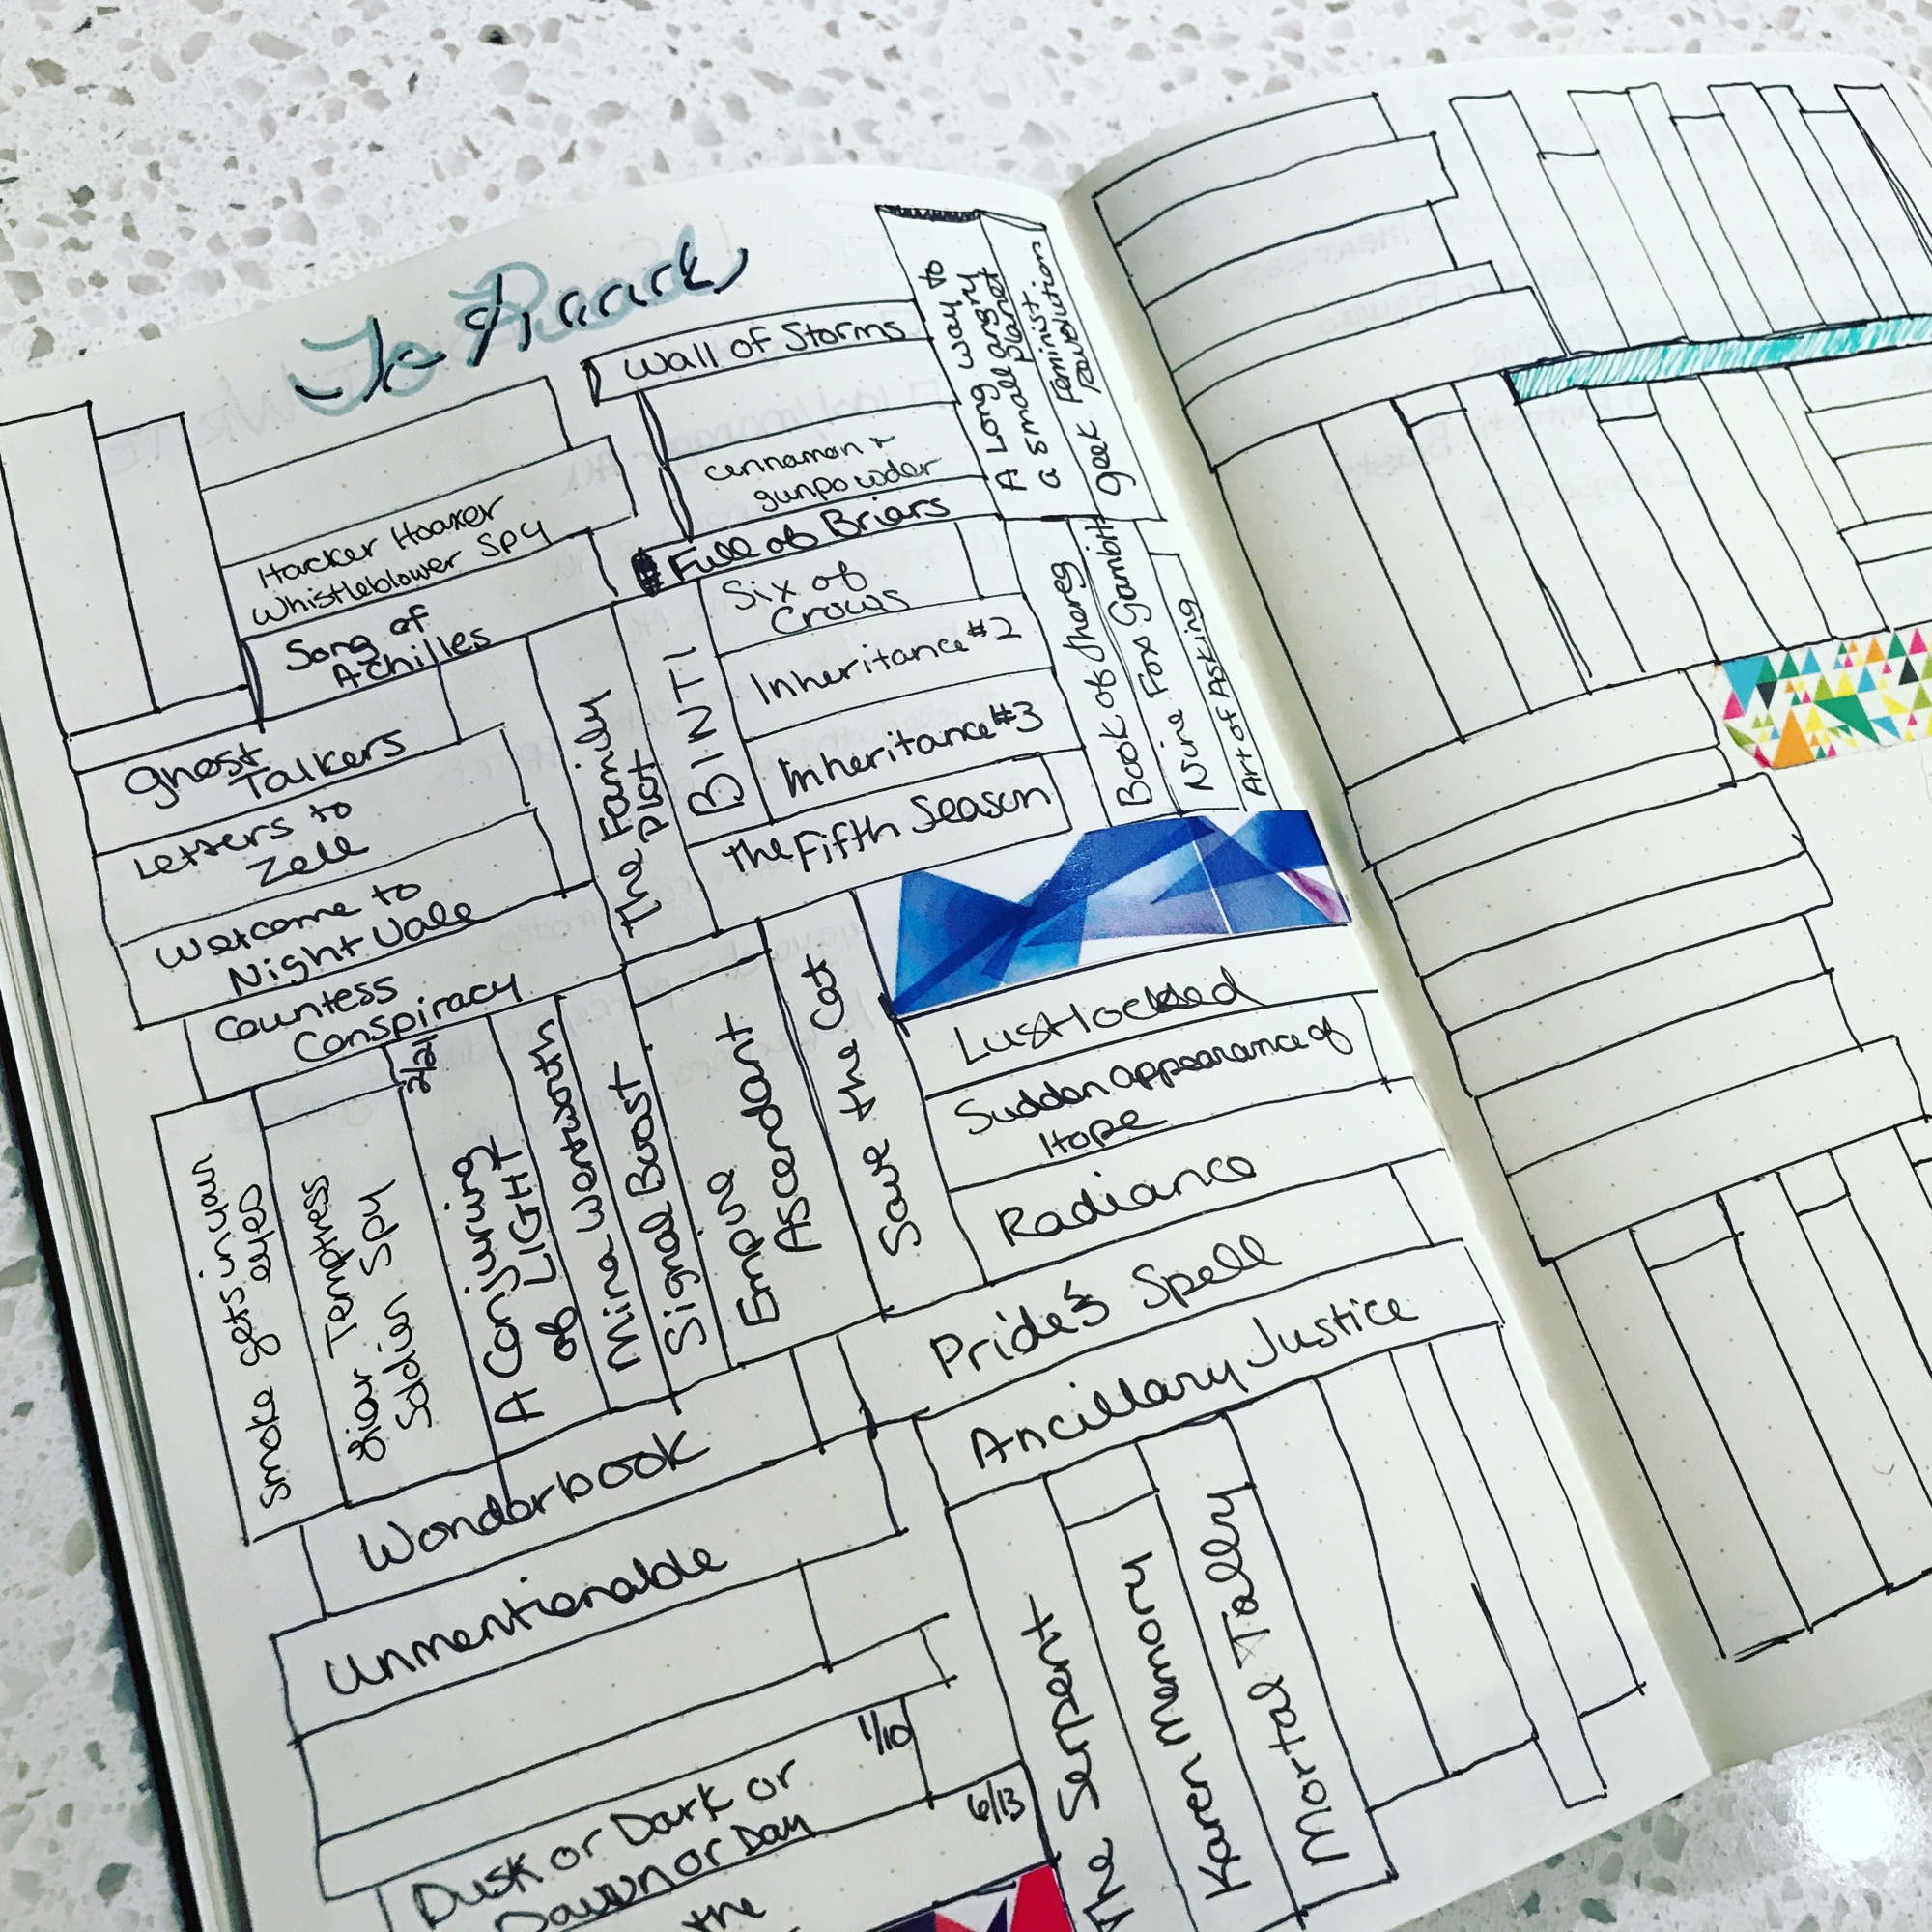 To Read
Wall of Storms
cinnamon +
gunpowder
Full of Briars
A Long way to
a small angry planet
geek Feminist
Revolution
Hacker Hoaxer
Whistleblower Spy
Song of
Achilles
Ghost
Talkers
Letters to
Zell
Welcome to
Night Vale
Countess
Conspiracy
The Family
Plot
BINTI
Six of
Crows
Inheritance #2
Inheritance #3
The Fifth Season
Book of Jhereg
Nine Fox Gambit
Art of Asking
smoke gets in your
eyes
Liar Temptress
Soldier Spy
A Conjuring
of LIGHT
Mina Wentworth
Signal Boost
Empire
Ascendant
Save the Cat
Lustlocked
Sudden appearance of
Hope
Radiance
Pride's Spell
Ancillary Justice
Wonderbook
unmentionable
1/10
Dusk or Dark or
Dawn or Day
6/13
the
The Serpent
Karen memory
Mortal Tally